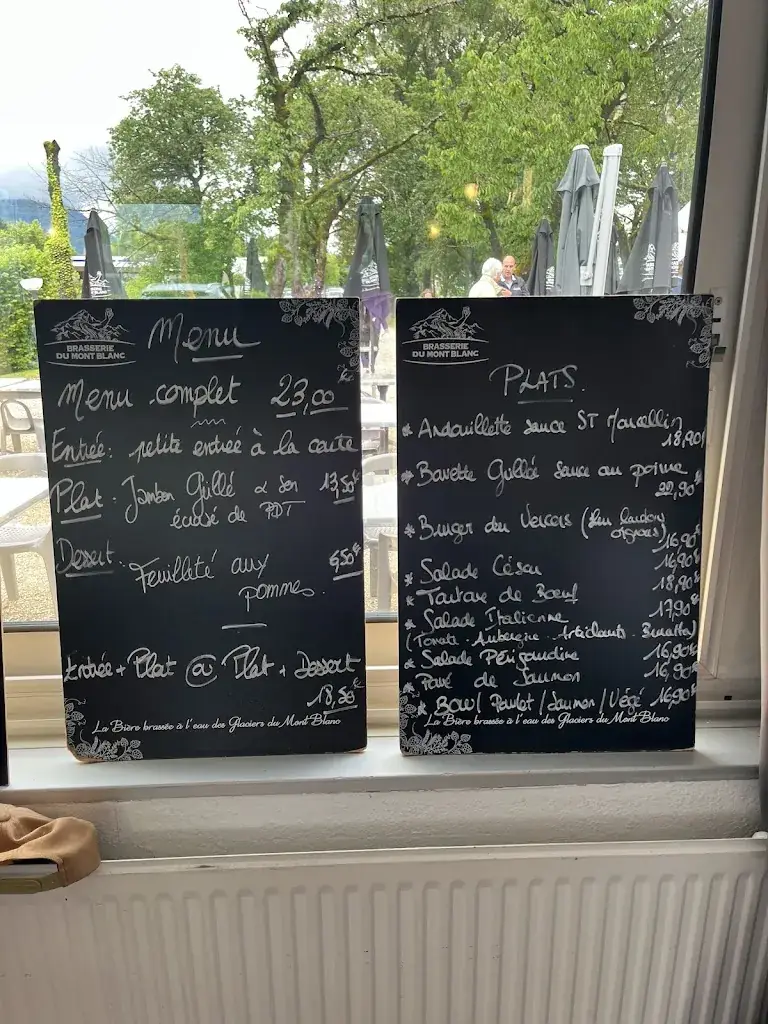 BRASSERIE
DU MONT BLANC
Menu
Menu complet 23,00
Entrée: petite entrée à la carte
Plat: Jambon Grillé & son 13,50€
écrasé de PDT
Dessert: Feuilleté aux 6,50€
pommes.
Entrée + Plat @ Plat + Dessert
18,50€
La Bière brassée à l'eau des Glaciers du Mont Blanc
BRASSERIE
DU MONT BLANC
PLATS
* Andouillette sauce ST Marcellin
18,90€
* Bavette Grillée sauce au poivre
22,90€
* Burger du Vercors ( lardons
oignons) 16,90€
* Salade César 16,90€
* Tartare de Boeuf 18,90€
* Salade Italienne 17,90€
(Tomate. Aubergine. Artichauts. Buratta)
* Salade Périgourdine 16,90€
* Pavé de Saumon 16,90€
* Bowl Poulet/Saumon/Végé 16,90€
La Bière brassée à l'eau des Glaciers du Mont Blanc